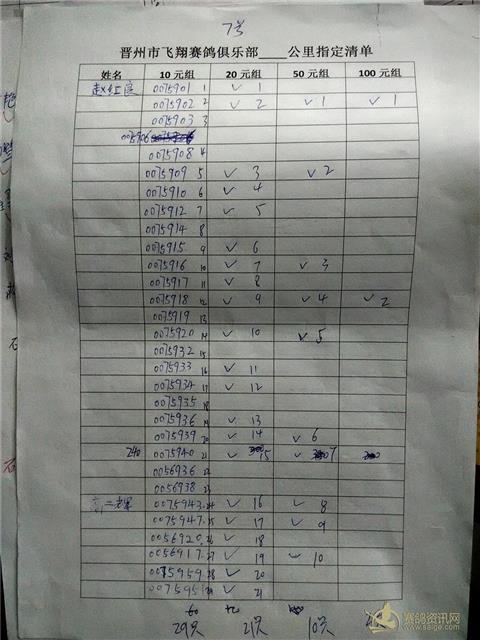 7号
晋州市飞翔赛鸽俱乐部____公里指定清单
姓名 10元组 20元组 50元组 100元组
0075901 1 ✓ 1
0075902 2 ✓ 2 ✓ 1 ✓ 1
0075903 3
0075906
0075908 4
0075909 5 ✓ 3 ✓ 2
0075910 6 ✓ 4
0075912 7 ✓ 5
0075914 8
0075915 9 ✓ 6
0075916 10 ✓ 7 ✓ 3
0075917 11 ✓ 8
0075918 12 ✓ 9 ✓ 4 ✓ 2
0075919 13
0075920 14 ✓ 10 ✓ 5
0075932 15
0075933 16 ✓ 11
0075934 17 ✓ 12
0075935 18
0075936 19 ✓ 13
0075939 20 ✓ 14 ✓ 6
240 0075940 21 15 7
0056936 22
0056938 23
0075943 24 ✓ 16 ✓ 8
0075947 25 ✓ 17 ✓ 9
0056920 26 ✓ 18
0056917 27 ✓ 19 ✓ 10
0075959 28 ✓ 20
007595 29 ✓ 21
29只 21只 10只 2只
赛鸽资讯网
www.saige.com